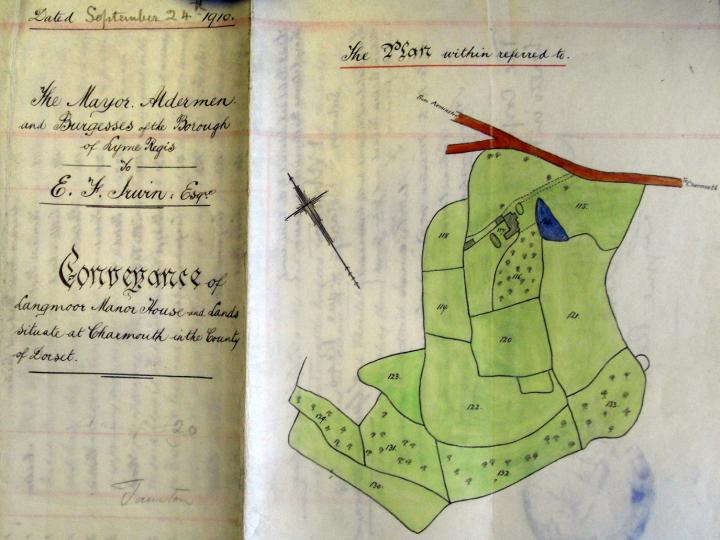 Dated September 24th 1910.
The Mayor. Aldermen
and Burgesses of the Borough
of Lyme Regis
To
E. F. Irwin: Esqre
Conveyance of
Langmoor Manor House and Lands
situate at Charmouth in the County
of Dorset.
20
Taunton
The Plan within referred to.
From Axminster
To Charmouth
115.
118.
117
116
119
120
121.
123.
122.
133.
134.
131.
132
130.